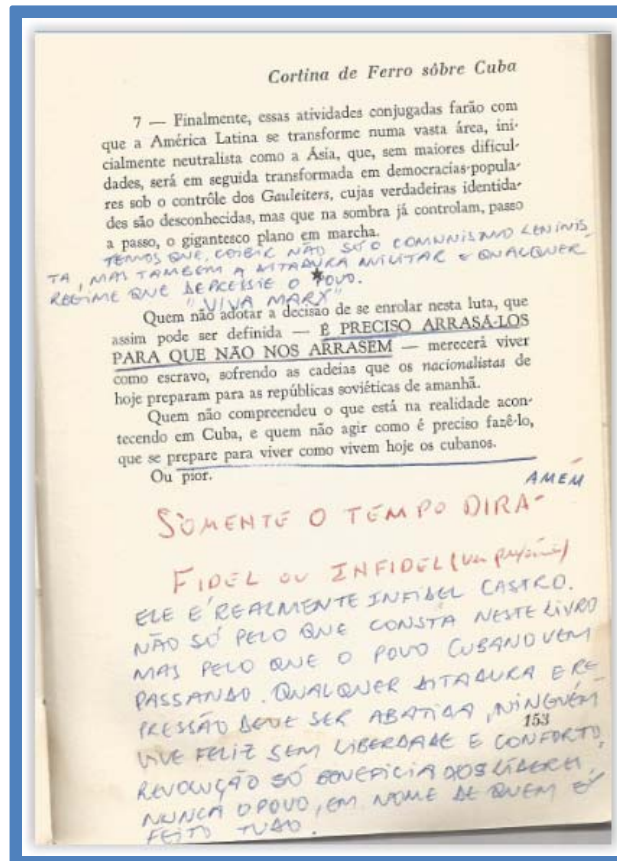 Cortina de Ferro sôbre Cuba
7 — Finalmente, essas atividades conjugadas farão com
que a América Latina se transforme numa vasta área, ini-
cialmente neutralista como a Ásia, que, sem maiores dificul-
dades, será em seguida transformada em democracias-popula-
res sob o contrôle dos Gauleiters, cujas verdadeiras identida-
des são desconhecidas, mas que na sombra já controlam, passo
a passo, o gigantesco plano em marcha.
TEMOS QUE COIBIR NÃO SÓ O COMUNISMO LENINIS
TA, MAS TAMBÉM A DITADURA MILITAR E QUALQUER
REGIME QUE DEPRESSIE O POVO.
"VIVA MARX"
Quem não adotar a decisão de se enrolar nesta luta, que
assim pode ser definida — É PRECISO ARRASÁ-LOS
PARA QUE NÃO NOS ARRASEM — merecerá viver
como escravo, sofrendo as cadeias que os nacionalistas de
hoje preparam para as repúblicas soviéticas de amanhã.
Quem não compreendeu o que está na realidade acon-
tecendo em Cuba, e quem não agir como é preciso fazê-lo,
que se prepare para viver como vivem hoje os cubanos.
Ou pior.
AMEM
SOMENTE O TEMPO DIRÁ
FIDEL OU INFIDEL
ELE É REALMENTE INFIDEL CASTRO.
NÃO SÓ PELO QUE CONSTA NESTE LIVRO
MAS PELO QUE O POVO CUBANO VEM
PASSANDO. QUALQUER DITADURA E RE
PRESSÃO DEVE SER ABATIDA, NINGUÉM
153
VIVE FELIZ SEM LIBERDADE E CONFORTO,
REVOLUÇÃO SÓ BENEFICIA AOS LÍDERES,
NUNCA O POVO, EM NOME DE QUEM É
FEITO TUDO.